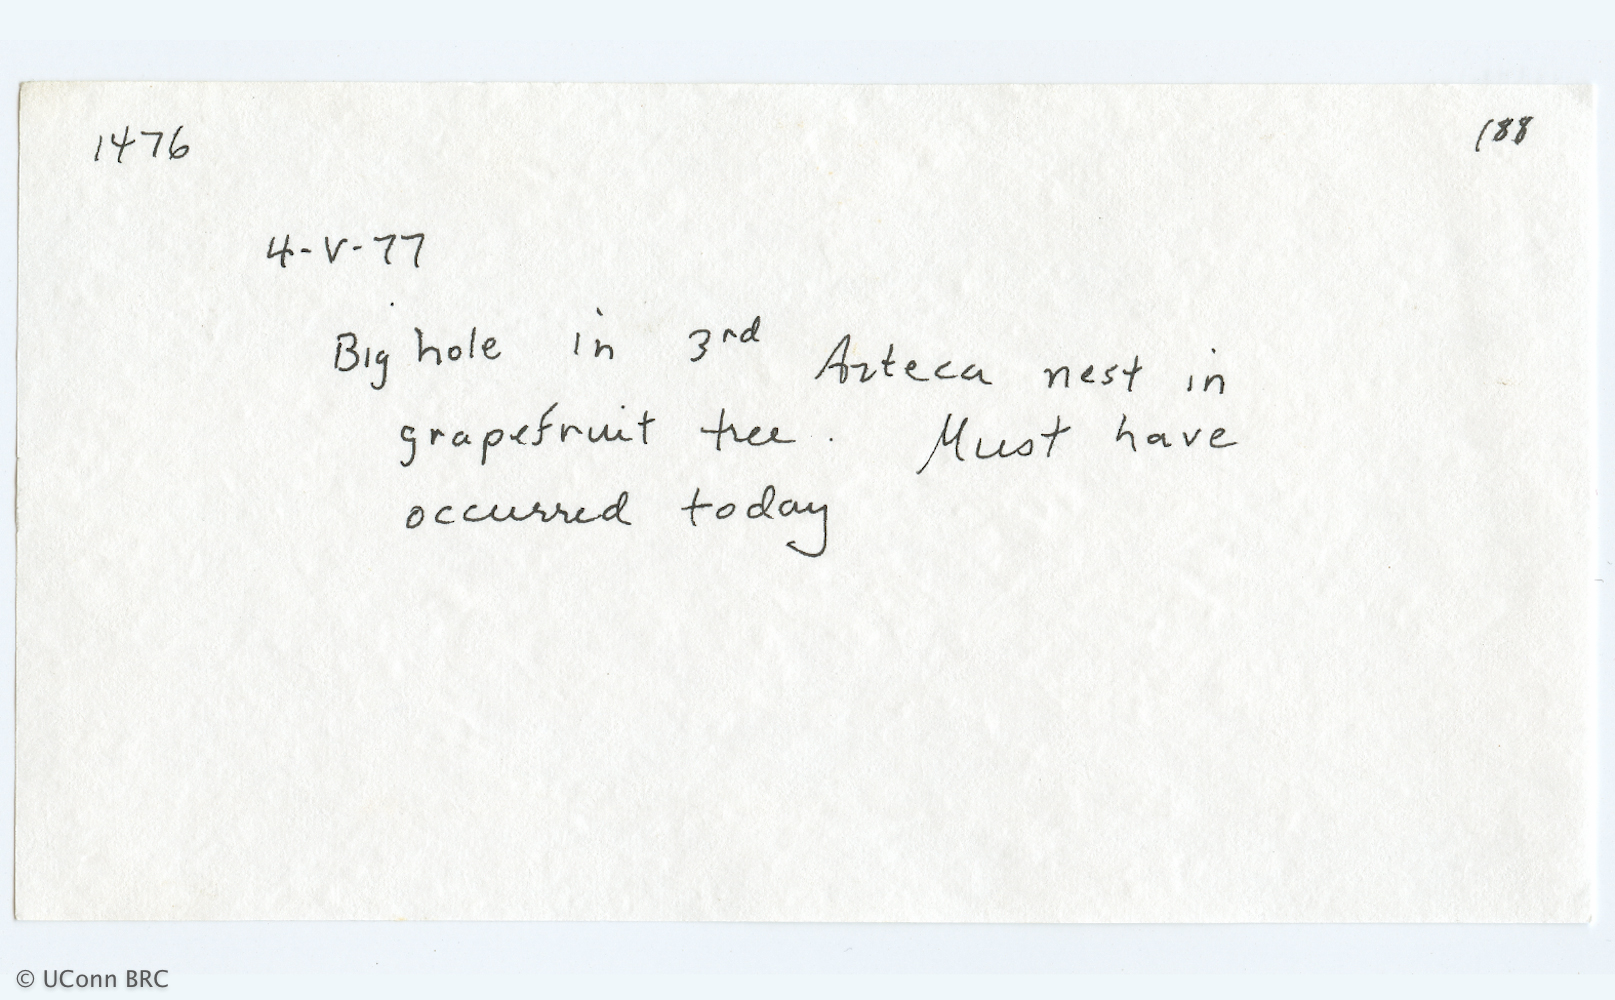 1476 188
4-V-77
Big hole in 3rd Azteca nest in
grapefruit tree. Must have
occurred today
© UConn BRC